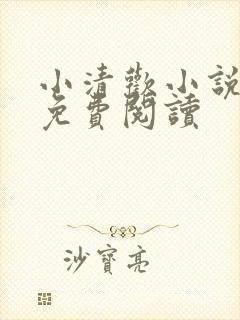 小清歡小說
免費閱讀
沙寶亮